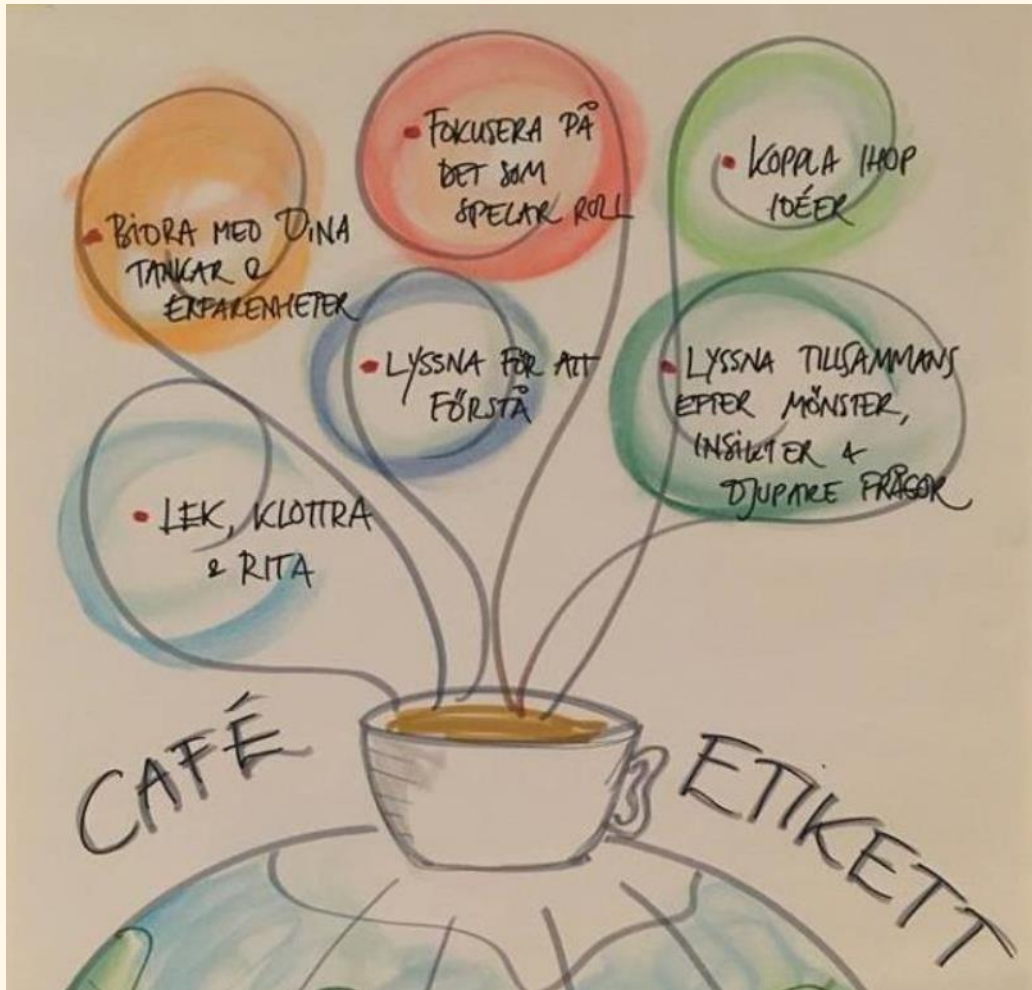 • BIDRA MED DINA
TANKAR &
ERFARENHETER
• FOKUSERA PÅ
DET SOM
SPELAR ROLL
• KOPPLA IHOP
IDÉER
• LYSSNA FÖR ATT
FÖRSTÅ
• LYSSNA TILLSAMMANS
EFTER MÖNSTER,
INSIKTER &
DJUPARE FRÅGOR
• LEK, KLOTTRA
& RITA
CAFÉ
ETIKETT